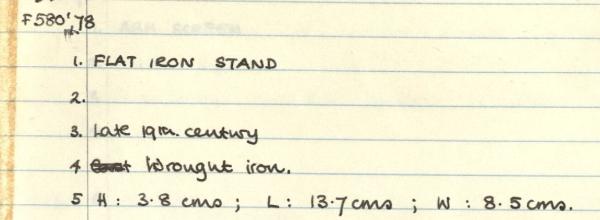 F580'78
1. FLAT IRON STAND
2.
3. Late 19th. century
4 Wrought iron.
5 H: 3.8 cms; L: 13.7cms; W: 8.5cms.